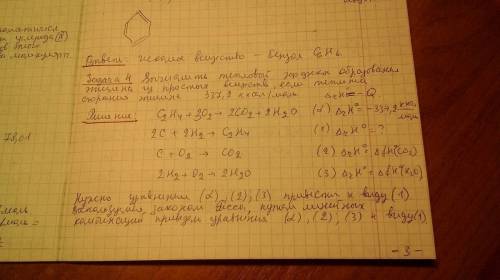 Ответ: искомое вещество – бензол C₆H₆
Задача 4 Вычислить тепловой эффект образования
этилена из простых веществ, если теплота
сгорания этилена 337,2 ккал/моль. ΔrH = -Q
Решение: C₂H₄ + 3O₂ → 2CO₂ + 2H₂O (α) ΔrH° = -337,2 ккал/моль
2C + 2H₂ → C₂H₄ (1) ΔrH° = ?
C + O₂ → CO₂ (2) ΔrH° = ΔfH°(CO₂)
2H₂ + O₂ → 2H₂O (3) ΔrH° = ΔfH°(H₂O)
Нужно уравнения (α), (2), (3) привести к виду (1)
законом Гесса, путём линейных
комбинаций приведём уравнения (α), (2), (3) к виду (1)
78,01
- 3 -